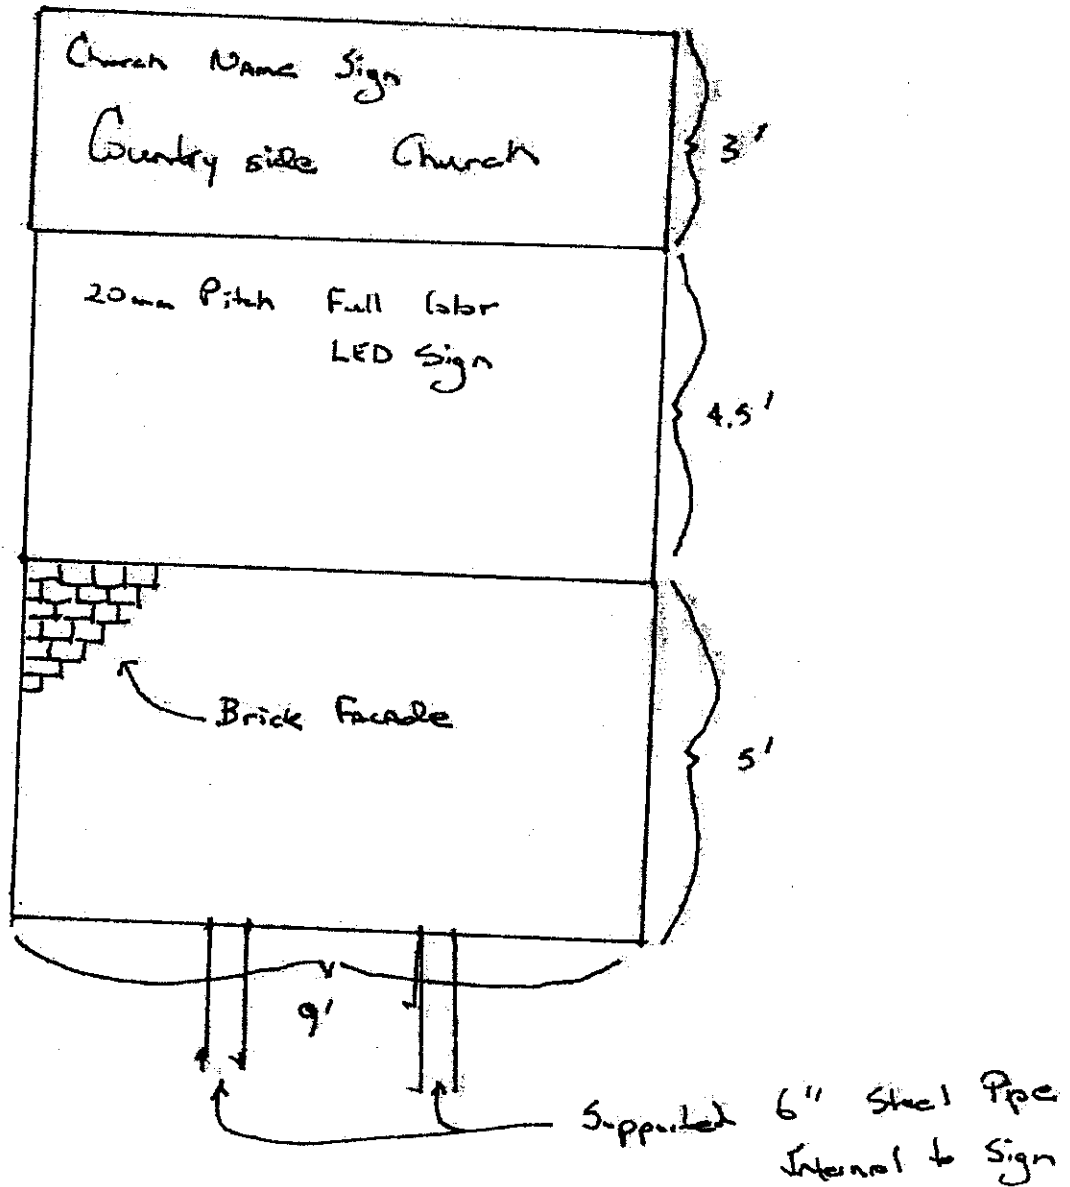 Church Name Sign
Country side Church
3'
20mm Pitch Full Color
LED Sign
4.5'
Brick Facade
5'
9'
Supported 6" Steel Pipe
Internal to Sign